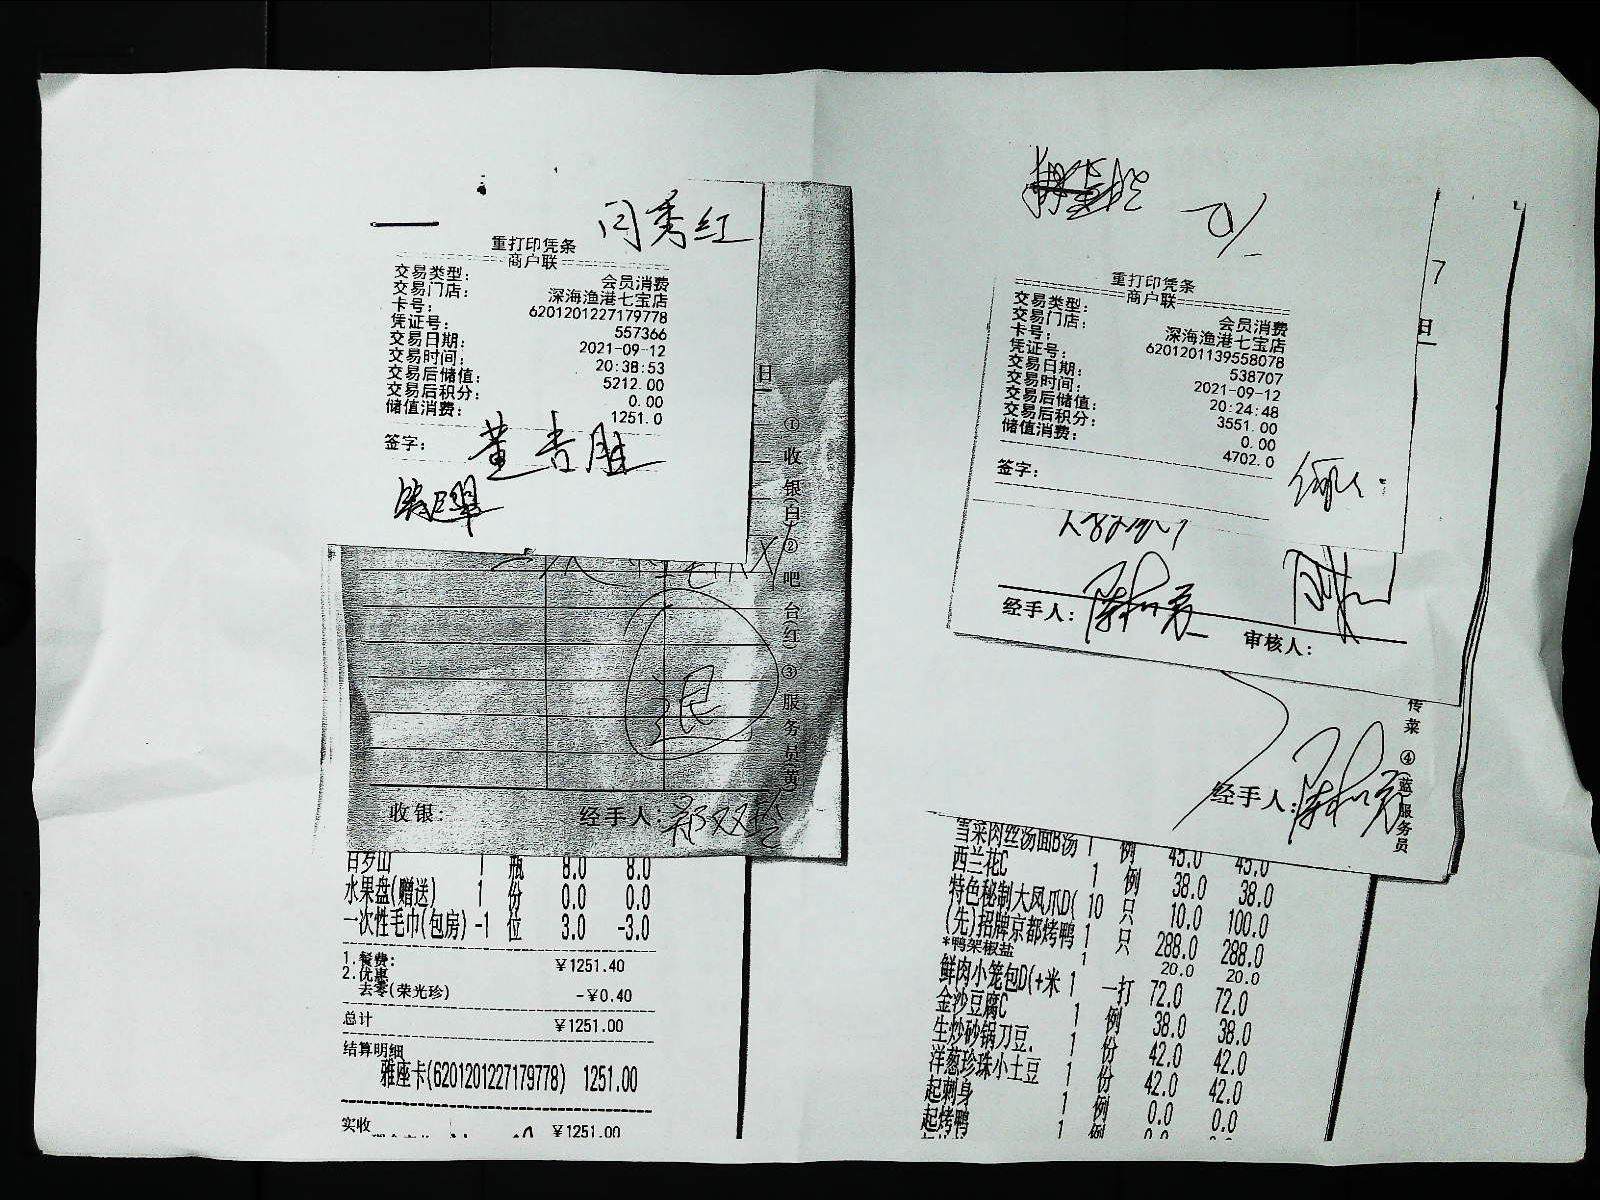 闫秀红
重打印凭条
商户联
交易类型: 会员消费
交易门店: 深海渔港七宝店
卡号: 6201201227179778
凭证号: 557366
交易日期: 2021-09-12
交易时间: 20:38:53
交易后储值: 5212.00
交易后积分: 0.00
储值消费: 1251.0
签字: 董吉胜
日
①收银(白)②吧台(红)③服务员(黄)
退
收银: 经手人:
百岁山 1 瓶 8.0 8.0
水果盘(赠送) 1 份 0.0 0.0
一次性毛巾(包房) -1 位 3.0 -3.0
1.餐费: ¥1251.40
2.优惠
去零(荣光珍) -¥0.40
总计 ¥1251.00
结算明细
雅座卡(6201201227179778) 1251.00
实收 ¥1251.00
7
日
重打印凭条
商户联
交易类型: 会员消费
交易门店: 深海渔港七宝店
卡号: 6201201139558078
凭证号: 538707
交易日期: 2021-09-12
交易时间: 20:24:48
交易后储值: 3551.00
交易后积分: 0.00
储值消费: 4702.0
签字:
经手人: 审核人:
传菜 ④(蓝)服务员
经手人:
雪菜肉丝汤面B汤 1 例 45.0 45.0
西兰花C 1 例 38.0 38.0
特色秘制大凤爪D( 10 只 10.0 100.0
(先)招牌京都烤鸭 1 只 288.0 288.0
*鸭架椒盐 1 20.0 20.0
鲜肉小笼包D(+米 1 一打 72.0 72.0
金沙豆腐C 1 例 38.0 38.0
生炒砂锅刀豆. 1 份 42.0 42.0
洋葱珍珠小土豆 1 份 42.0 42.0
起刺身 1 例 0.0 0.0
起烤鸭 1 例 0.0 0.0